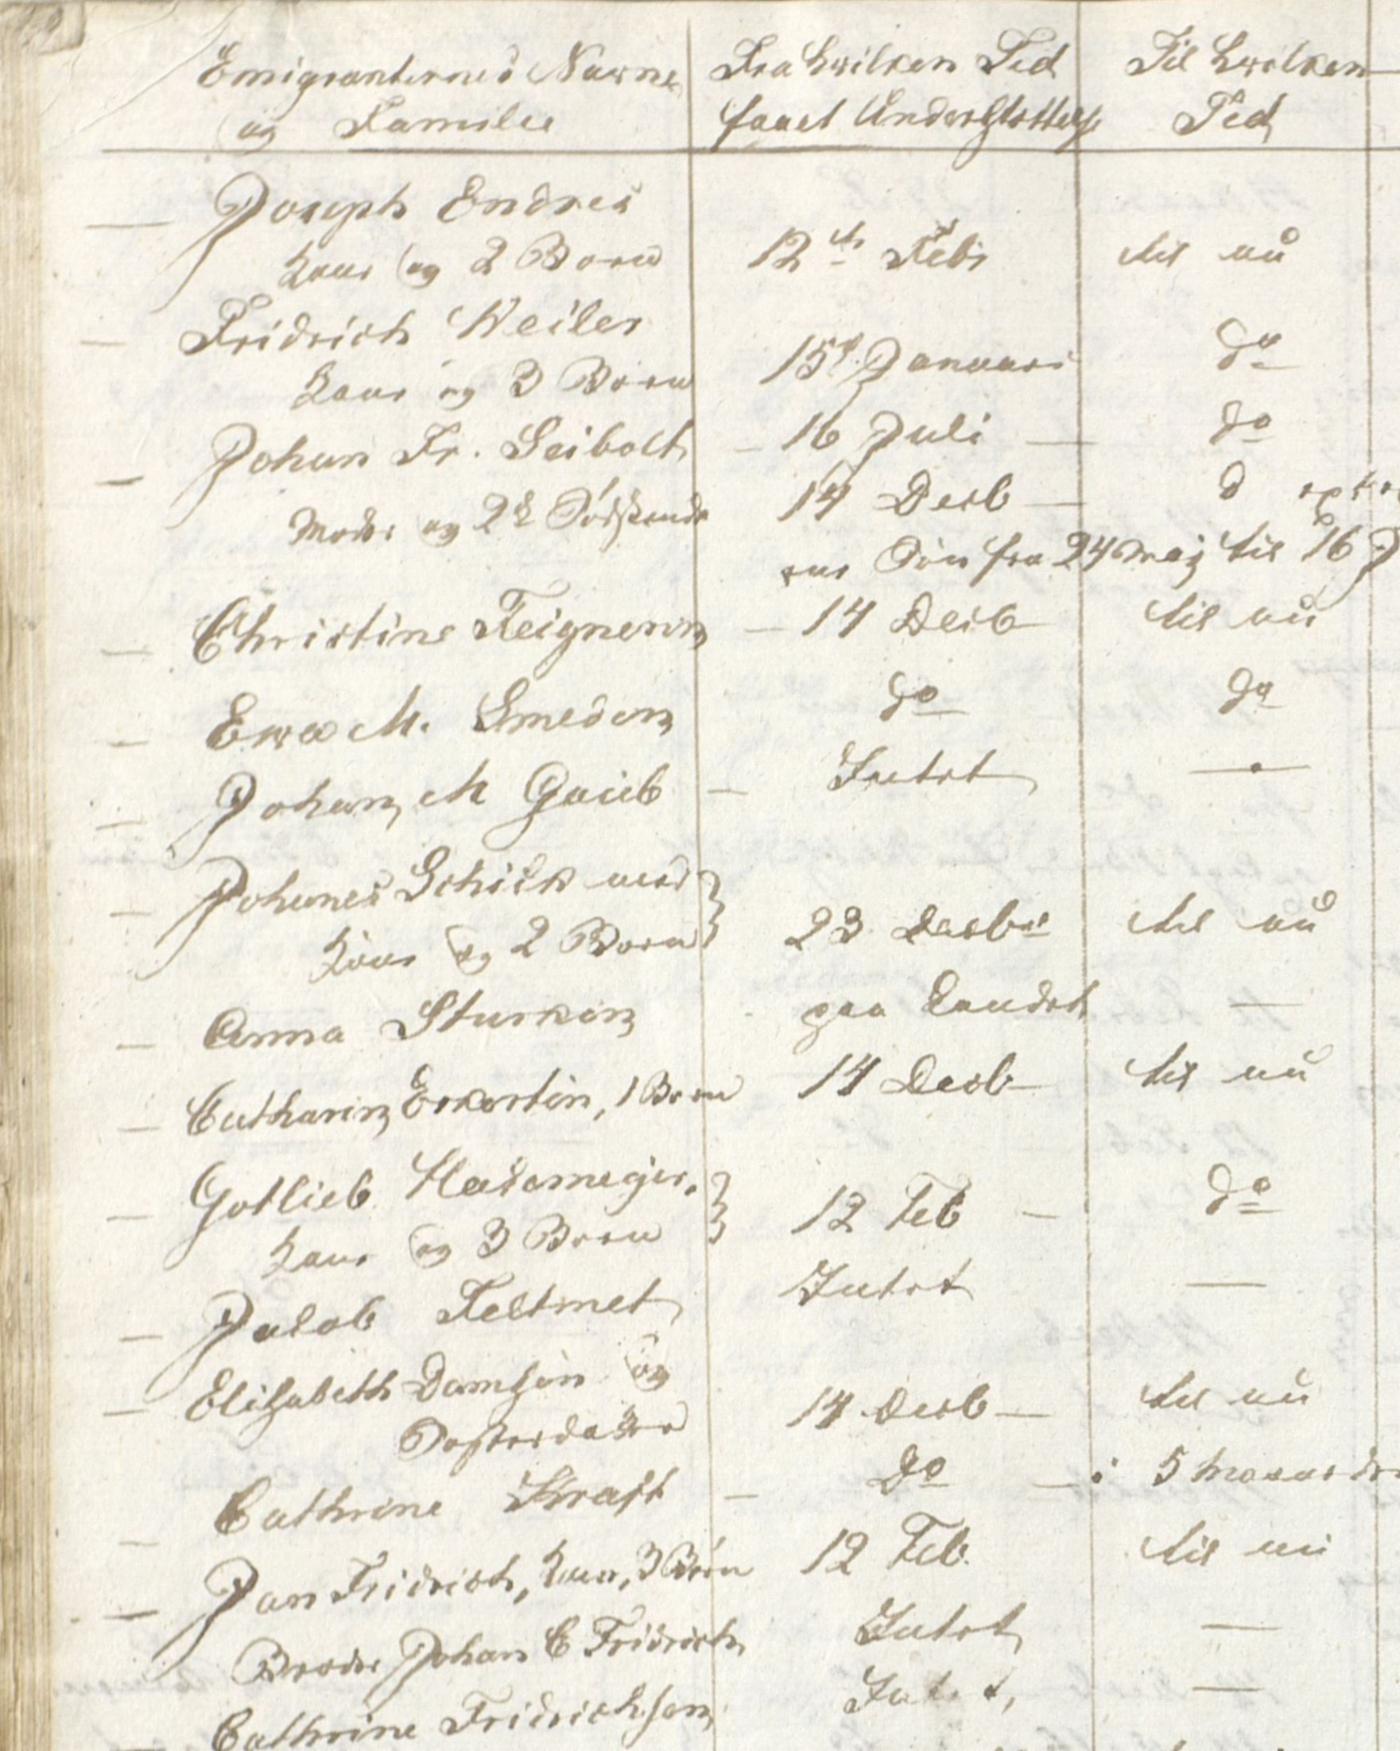 Emigranternes Navne Fra hvilken Tid Til hvilken
og Familie faaet Understøttelse Tid
Joseph Endres
Kone og 2 Børn 12te Feb: til nu
Fridrich Weiler
Kone og 3 Børn 15d Januari do
Johan Fr. Seibolt 16 Juli do
Moder og 2 Södskende 14 Decb d
Sön fra 24 Maj til 16 J
Christine Feignerin 14 Decb til nu
Ewa M. Smeden do do
Johan M Gaieb Intet
Johanes Schick med
Kone og 2 Börn 23 Decbr til nu
Anna Sturken paa Landet
Catharin Erkertin, 1 Barn 14 Decb til nu
Gotlieb
Kone og 3 Börn 12 Feb do
Jacob Feltmet Intet
Elisabeth Damsön og
14 Decb til nu
Cathrine Kraft do i 5 Maaneder
Jan Fridrich, Kone, 3 Börn 12 Feb. til nu
Broder Johan C Fridrich Intet
Cathrine Fridrichsen Intet,